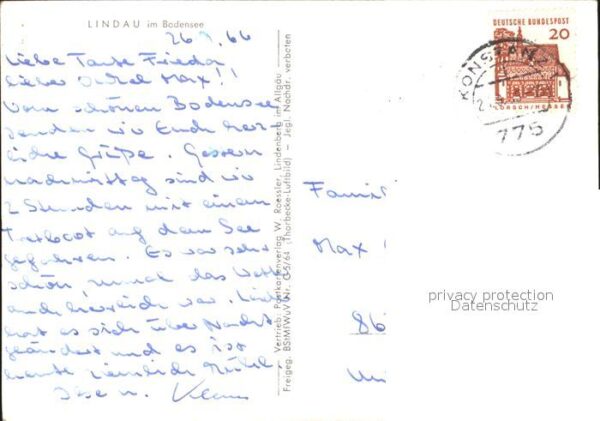 LINDAU im Bodensee
26. 9. 66
Liebe Tante Frieda,
lieber Onkel Max!!
Vom schönen Bodensee
senden wir Euch herz-
liche Grüße. Gestern
nachmittag sind wir
2 Stunden mit einem
Tretboot auf dem See
gefahren. Es war sehr
schön, das Wett
herrlich war. Leider
hat es sich über Nacht
geändert und es ist
heute ziemlich kühl.
Ilse u. Klaus
Vertrieb: Postkartenverlag W. Roessler, Lindenberg im Allgäu
Freigeg. BStMfWuV Nr. G 5/64 (Thorbecke-Luftbild) — Jegl. Nachdr. verboten
DEUTSCHE BUNDESPOST
20
LORSCH/HESSEN
KONSTANZ
775
Famil
Max
86
privacy protection
Datenschutz